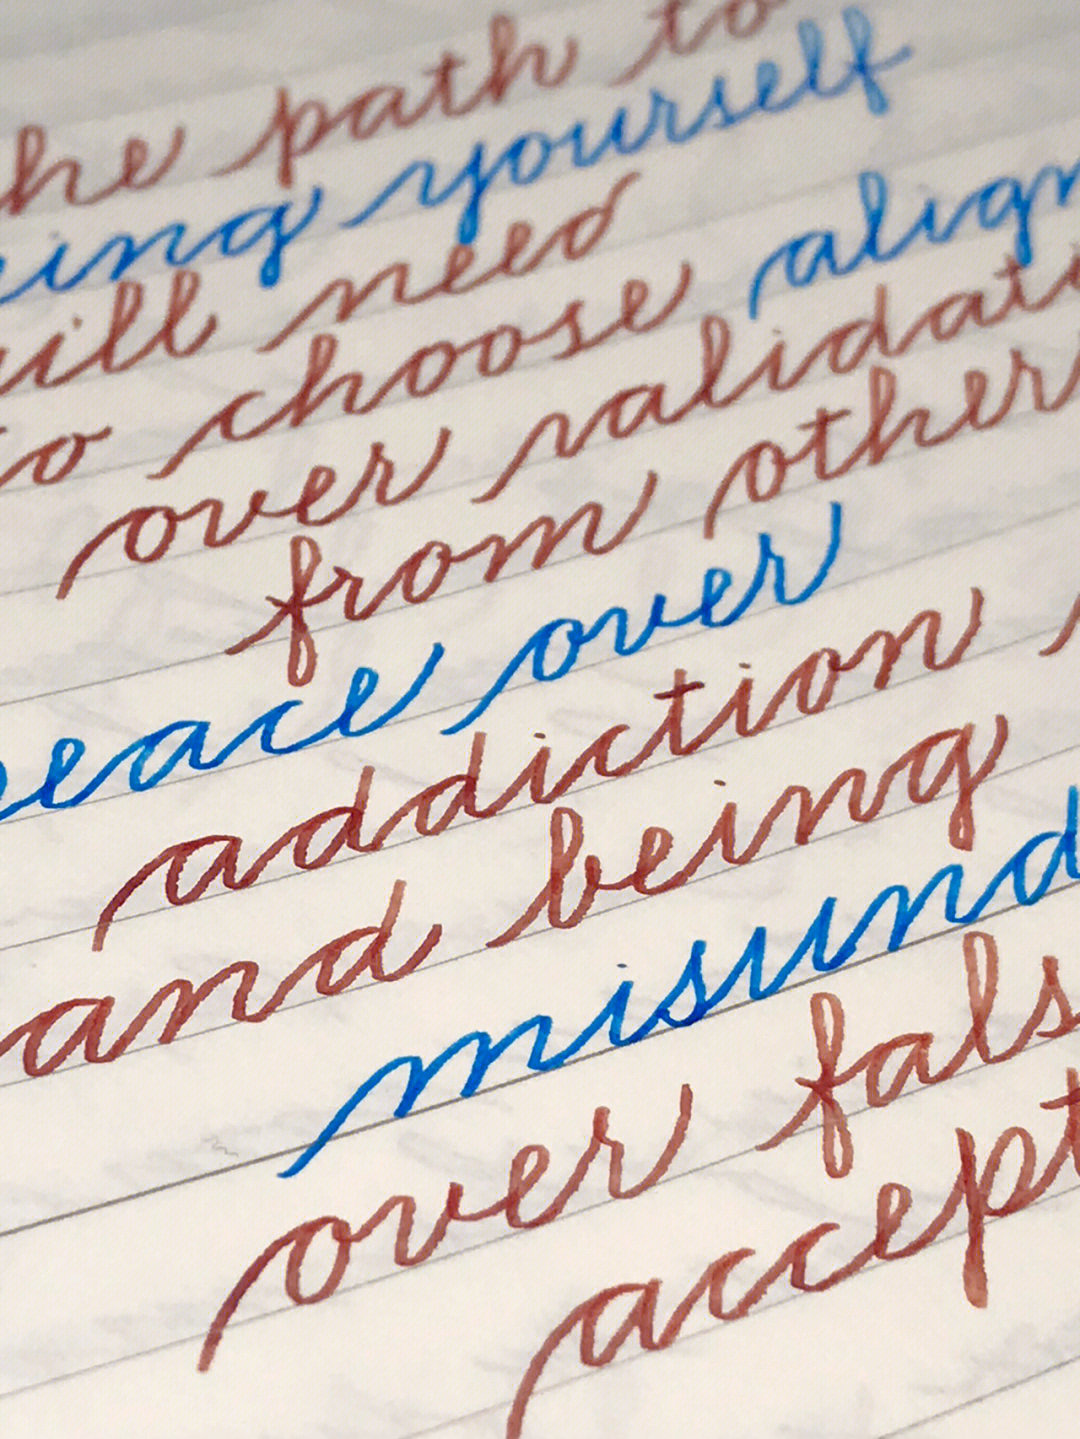 he path to
ing yourself
ill need
to choose align
over validati
from other
eace over
addiction
and being
misund
over fals
accept